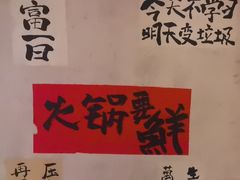 富
一百
今天不学习
明天变垃圾
火锅要鲜
再压
万生